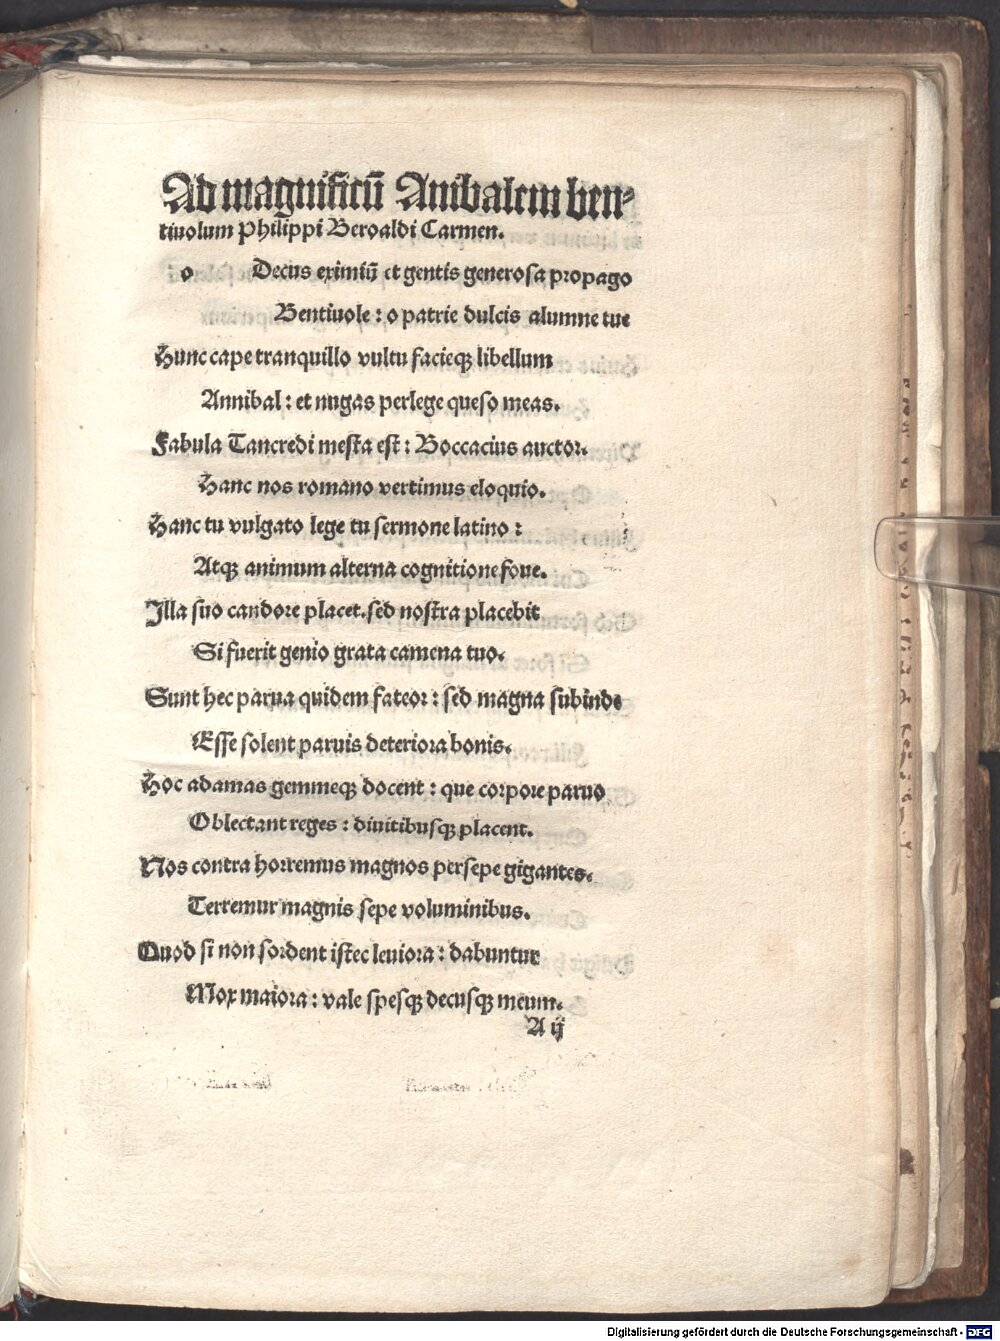 Ad magnificũ Anibalem ben⸗
tiuolum Philippi Beroaldi Carmen.
o Decus eximiũ et gentis generosa propago
Bentiuole : o patrie dulcis alumne tue
Hunc cape tranquillo vultu facieqꝫ libellum
Annibal : et nugas perlege queso meas.
Fabula Tancredi mesta est : Boccacius auctor.
Hanc nos romano vertimus eloquio.
Hanc tu vulgato lege tu sermone latino :
Atqꝫ animum alterna cognitione foue.
Illa suo candore placet. sed nostra placebit
Si fuerit genio grata camena tuo.
Sunt hec parua quidem fateor : sed magna subinde
Esse solent paruis deteriora bonis.
Hoc adamas gemmeqꝫ docent : que corpore paruo
Oblectant reges : diuitibusqꝫ placent.
Nos contra horremus magnos persepe gigantes.
Terremur magnis sepe voluminibus.
Quod si non sordent istec leuiora : dabuntur
Mox maiora : vale spesqꝫ decusqꝫ meum.
A ij
Digitalisierung gefördert durch die Deutsche Forschungsgemeinschaft - DFG